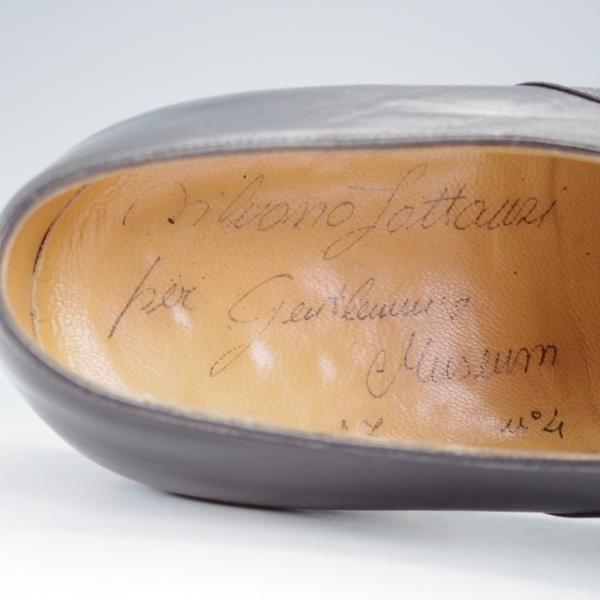 Silvano Lattanzi
per Gentlemen's
Museum
n°4